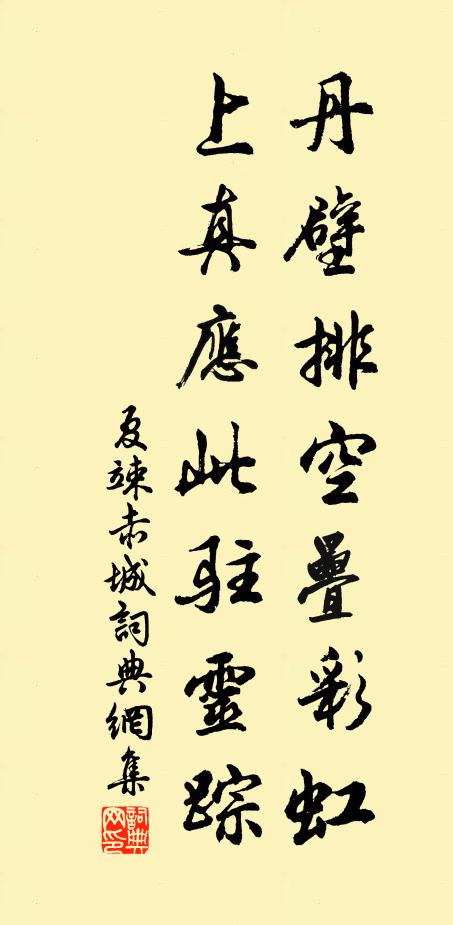 丹壁排空疊彩虹
上真應此駐靈踪
夏竦赤城詞典網集
詞典网印